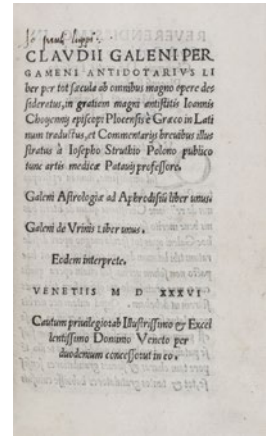 CLAVDII GALENI PER
GAMENI ANTIDOTARIVS LI
ber per tot sæcula ab omnibus magno opere des
sideratus, in gratiam magni antistitis Ioannis
Choyennis episcopi Plocensis è Græco in Lati
num traductus, et Commentarijs breuibus illus
stratus à Iosepho Struthio Polono publico
tunc artis medicæ Patauij professore.
Galeni Astrologiæ ad Aphrodisiū liber unus.
Galeni de Vrinis Liber unus.
Eodem interprete.
VENETIIS M D XXXVI
Cautum priuilegio ab Illustrissimo & Excel
lentissimo Domino Veneto per
duodenium in eo.